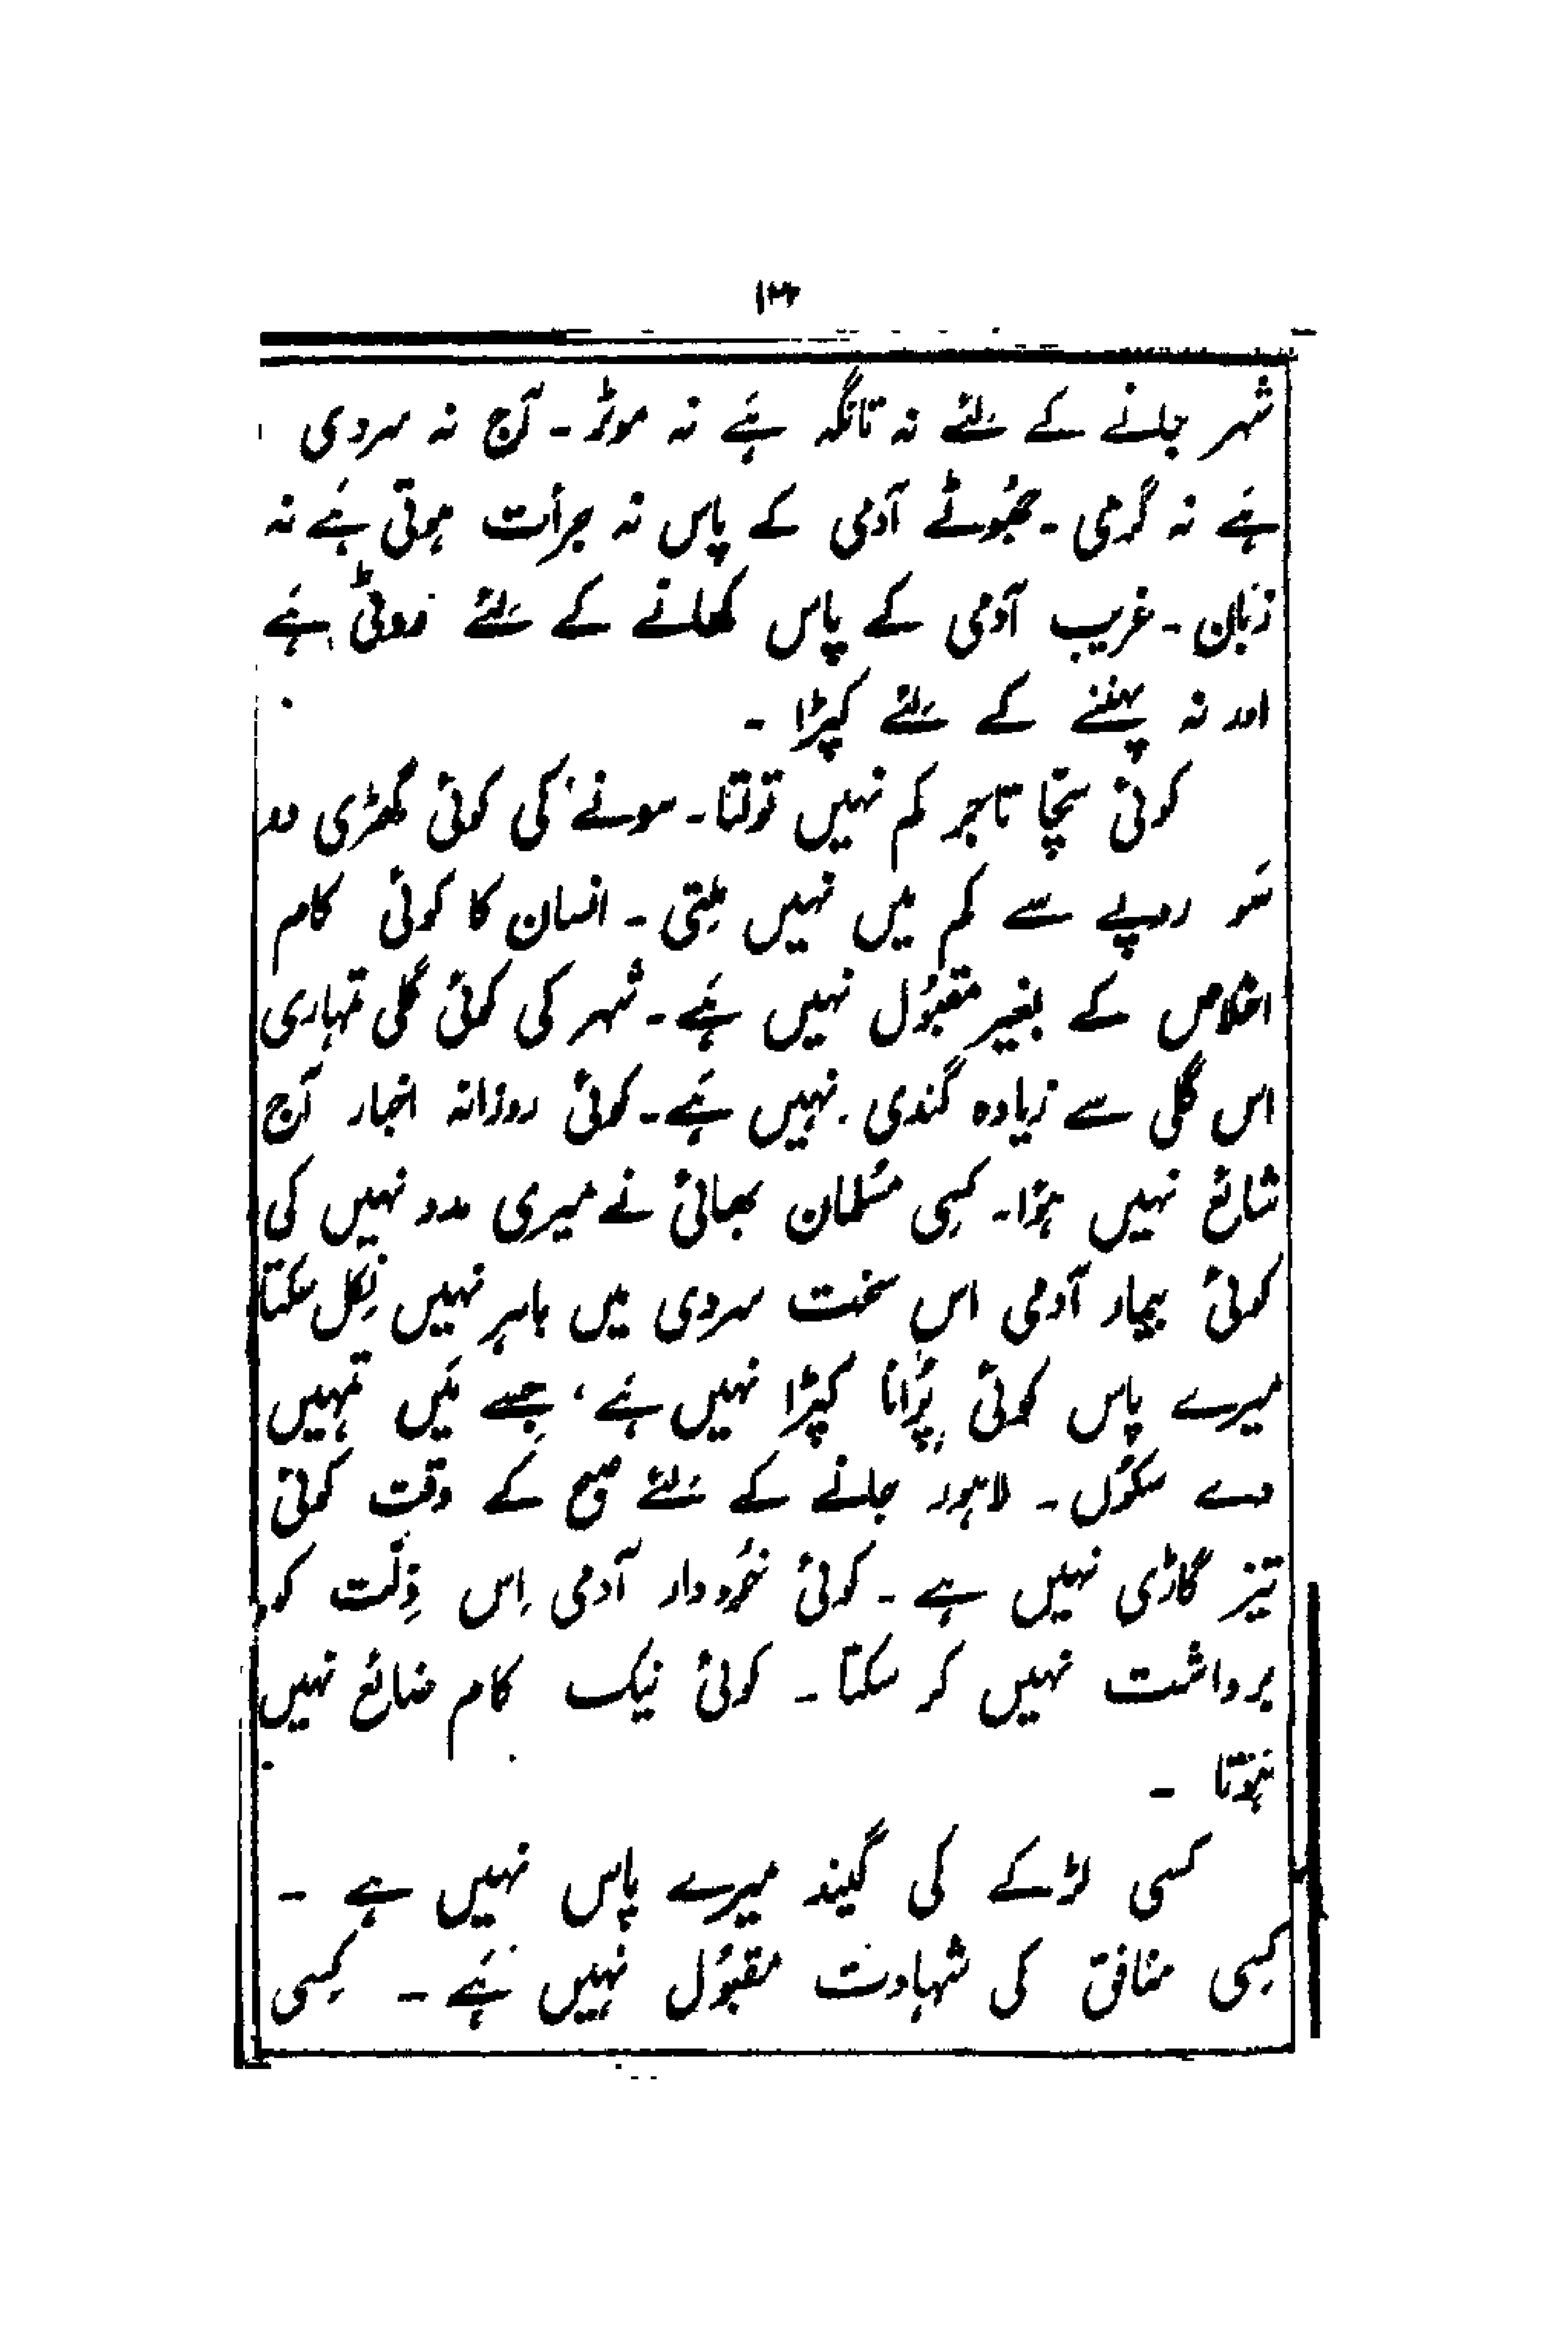 ۱۳
شہر جانے کے لئے نہ تانگہ ہَے نہ موٹر۔ آج نہ سردی
ہَے نہ گرمی۔ جھُوٹے آدمی کے پاس نہ جرأت ہوتی ہَے نہ
زبان۔ غریب آدمی کے پاس کھانے کے لئے نہ روٹی ہَے
اور نہ پہننے کے لئے کپڑا۔
کوئی سچّا تاجر کم نہیں تولتا۔ سونے کی کوئی گھڑی دو
سَو روپے سے کم میں نہیں مِلتی۔ انسان کا کوئی کام
اخلاص کے بغیر مقبُول نہیں ہَے۔ شہر کی کوئی گلی تمہاری
اس گلی سے زیادہ گندی نہیں ہَے۔ کوئی روزانہ اخبار آج
شائع نہیں ہؤا۔ کسِی مسُلمان بھائی نے میری مدد نہیں کی
کوئی بیمار آدمی اس سخت سردی میں باہر نہیں نِکل سکتا
میرے پاس کوئی پُرانا کپڑا نہیں ہَے، جِسے مَیں تمہیں
دے سکُوں۔ لاہور جانے کے لئے صبح کے وقت کوئی
تیز گاڑی نہیں ہے۔ کوئی خُوددار آدمی اِس ذِلّت کو
برداشت نہیں کر سکتا۔ کوئی نیک کام ضائع نہیں
ہوتا۔
کسی لڑکے کی گیند میرے پاس نہیں ہے۔
کسِی منافق کی شہادت مقبُول نہیں ہَے۔ کسِی